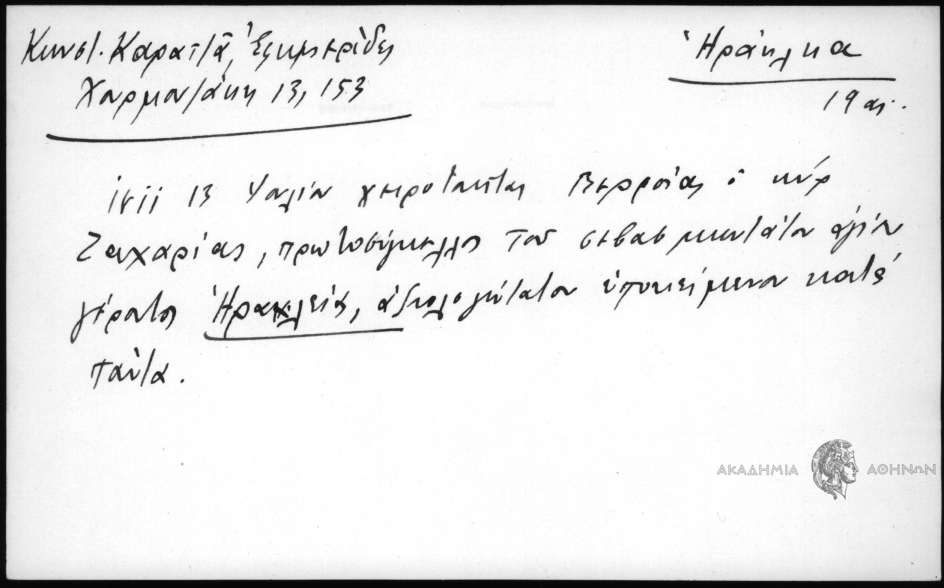 Κωνστ. Καρατζᾶ, Ἐφημερίδες
Χαρμουζάκη 13, 153
Ἡράκλεια
19 αι.
13 χειροτονεῖται Βερροίας ὁ κύρ
Ζαχαρίας, πρωτοσύγκελλος τοῦ σεβασμιωτάτου ἁγίου
γέροντος Ἡρακλείας, ἀξιολογώτατον ὑποκείμενον κατὰ
πάντα.
ΑΚΑΔΗΜΙΑ ΑΘΗΝΩΝ